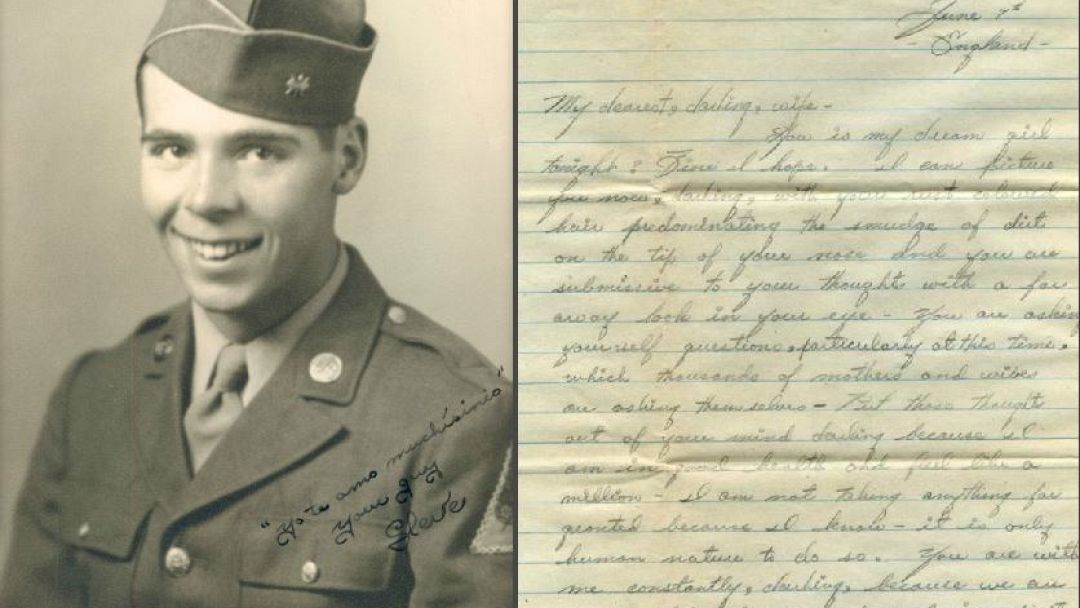 "Yo te amo muchísinio"
Your guy
Steve
June 7th
- England -
My dearest, darling, wife -
How is my dream girl
tonight? Fine I hope. I can picture
you now, darling, with your rust colored
hair predominating the smudge of dirt
on the tip of your nose and you are
submissive to your thoughts with a far
away look in your eye - You are askin
yourself questions, particularly at this time,
which thousands of mothers and wives
are asking themselves - Put those thoughts
out of your mind darling because I
am in good health and feel like a
million - I am not taking anything for
granted because I know - it is only
human nature to do so. You are with
me constantly, darling, because we are